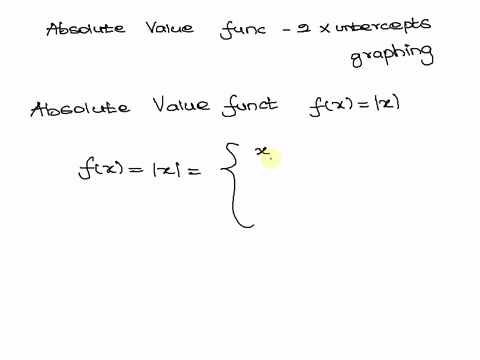 Absolute Value func - 2 x intercepts
graphing
Absolute Value funct f(x) = |x|
f(x) = |x| = { x